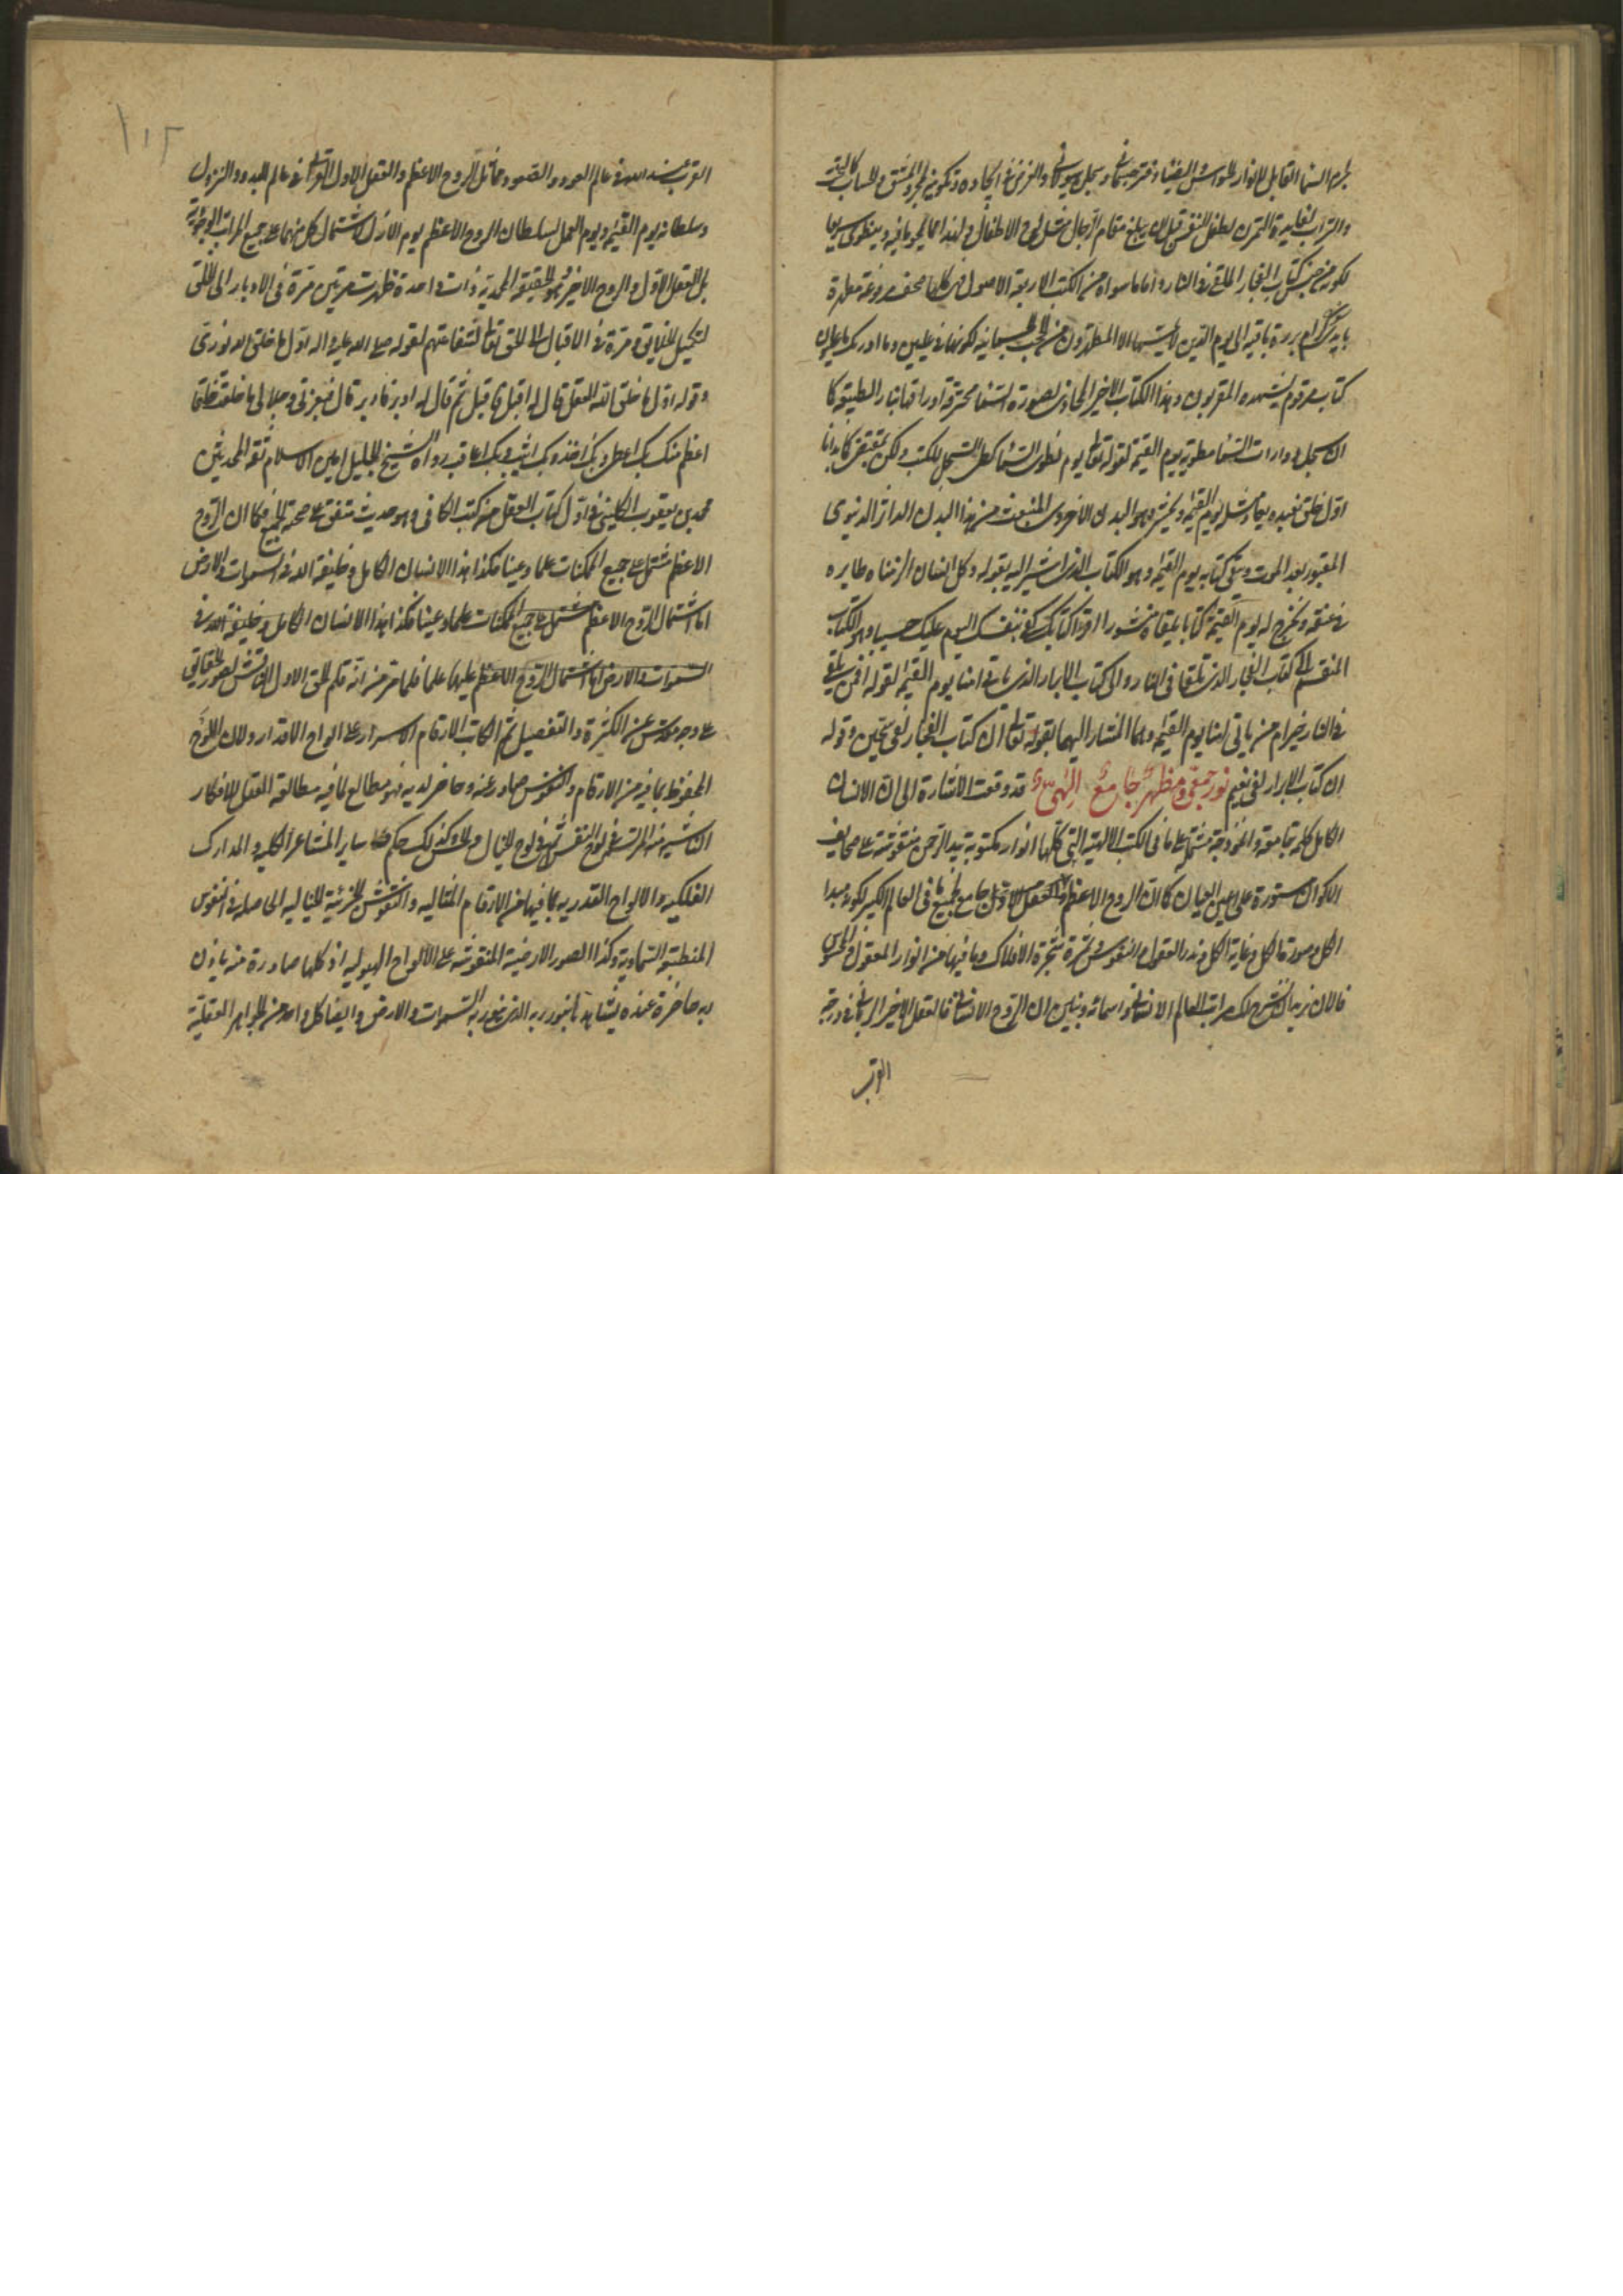 والتراب لغاية التمرن لطفل النفس قبل ان يبلغ مقام الرجال مثل لوح الاطفال
لكونه من جنس كتاب الفجار الملقى فى النار واما ما سواه من الكتب الاربعة الاصول فهى كلها صحف مرفوعة مطهرة
بايدى سفرة كرام بررة باقية الى يوم الدين لا يمسها الا المطهرون من الحجب الجسمانية لكونها فى عليين وما ادريك ما عليون
كتاب مرقوم يشهده المقربون وهذا الكتاب الاخير الحاوى لصورة استنسا محترقة اوراقها بنار الطبيعة كما
ان سجل وارات السماء مطوية يوم القيمة لقوله تعالى يوم نطوى السماء كطى السجل للكتب ولكن بمقتضى كما بدانا
اول خلق نعيده يعاد مثله يوم القيمة ويحشر وهو البدن الاخروى المنبعث من هذا البدن الداثر الدنيوى
المقبور بعد الموت ويبقى كتابه يوم القيمة وهو الكتاب الذى اشير اليه بقوله وكل انسان الزمناه طايره
فى عنقه ونخرج له يوم القيمة كتابا يلقاه منشورا اقرا كتابك كفى بنفسك اليوم عليك حسيبا وهو الكتاب
المنقسم الى كتاب الفجار الذى يلقى فى النار والى كتاب الابرار الذى ياتى امنا يوم القيمة لقوله افمن يلقى
فى النار خير ام من ياتى امنا يوم القيمة وهما المشار اليهما بقوله تعالى ان كتاب الفجار لفى سجين وقوله
ان كتاب الابرار لفى نعيم نور جمعى ومظهر جامع الهى قد وقعت الاشارة الى ان الانسان
الكامل كلمة جامعة وانموذجة مشتمل على ما فى الكتب الالهية التى كلها انوار مكتوبة بيد الرحمن منقوشة على صحايف
الاكوان مستورة على اعين العميان كما ان الروح الاعظم والعقل الاول جامع لجميع ما فى العالم الكبير لكونه مبدا
الكل وصورة الكل وغاية الكل وبذر العقول والنفوس وثمرة شجرة الافلاك وما فيها من انوار المعقول والمحسوس
فالان نريد ان نشرح لك مراتب العالم الانسانى واسمائه ونبين ان الروح الانسانى فالعقل الاخير الربانى فى درجة
القر
١١٢
القرب عند الله فى عالم العود والصعود مماثل الروح الاعظم والعقل الاول القرانى فى عالم البدو والنزول
وسلطانه يوم القيمة ويوم العمل لسلطان الروح الاعظم يوم الازل لاشتمال كل منهما على جميع المراتب الوجودية
بل العقل الاول والروح الاخير هو الحقيقة المحمدية ذات واحدة ظهرت مرتين مرة فى الادبار الى الخلق
لتكميل الخلايق ومرة فى الاقبال الى الحق تعالى لشفاعتهم لقوله صلى الله عليه واله اول ما خلق الله نورى
وقوله اول ما خلق الله العقل قال له اقبل فاقبل ثم قال له ادبر فادبر قال فبعزتى وجلالى ما خلقت خلقا
اعظم منك بك اعطى وبك اخذ وبك اثيب وبك اعاقب رواه الشيخ الجليل امين الاسلام ثقة المحدثين
محمد بن يعقوب الكلينى فى اول كتاب العقل من كتب الكافى وهو حديث متفق على صحته للجميع فكما ان الروح
الاعظم مشتمل على جميع الممكنات علما وعينا فكذا هذا الانسان الكامل وخليفة الله فى السموات والارض
اما اشتمال الروح الاعظم مشتمل على جميع الممكنات علما وعينا فكذا هذا الانسان الكامل وخليفة الله فى
السموات والارض اما اشتمال الروح الاعظم عليها علما فلما مر من انه قلم الحق الاول الناقش لصور الحقايق
على وجه مقدس عن الكثرة والتفصيل ثم الكاتب لارقام الاسرار على الواح الاقدار ولان اللوح
المحفوظ بما فيه من الارقام والنقوش صادر عنه وحاضر لديه فهو مطالع لما فيه مطالعة العقل للافكار
الناشية منه المرتسمة فى لوح النفس ثم فى لوح الخيال وكذلك حكم ساير المشاعر الكلية والمدارك
الفلكية والالواح القدرية بما فيها من الارقام المثالية والنقوش الجزئية الخيالية الحاصلة فى النفوس
المنطبعة السماوية وكذا الصور الارضية المنقوشة على الالواح الهيولية اذ كلها صادرة منه باذن
ربه حاضرة عنده يشاهدها بنور ربه الذى ينور به السموات والارض وايضا كل واحد من الجواهر العقلية